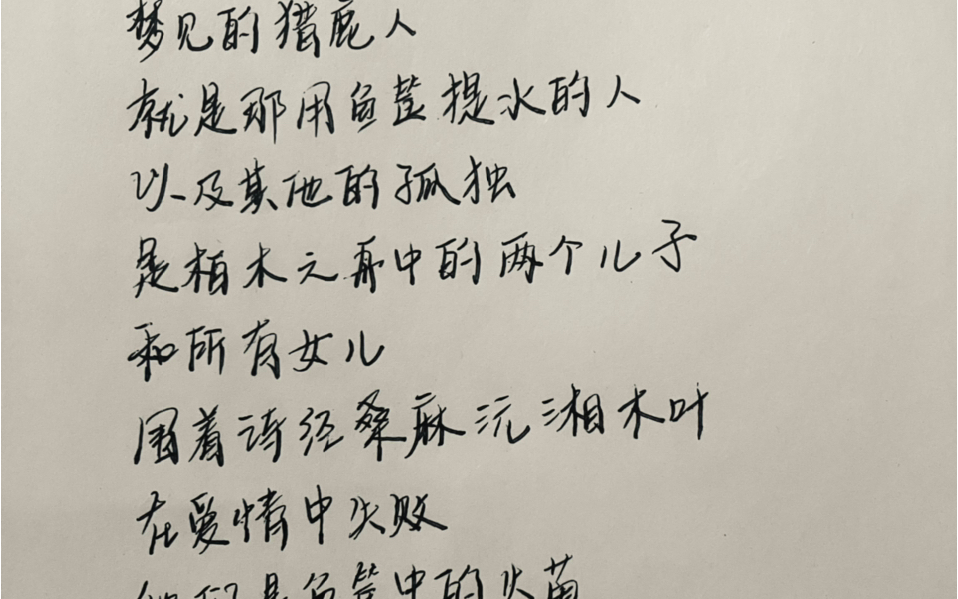 梦见的猎鹿人
就是那用鱼筐提水的人
以及其他的孤独
是柏木之舟中的两个儿子
和所有女儿
围着诗经桑麻沅湘木叶
在爱情中失败
他们是鱼筐中的火苗